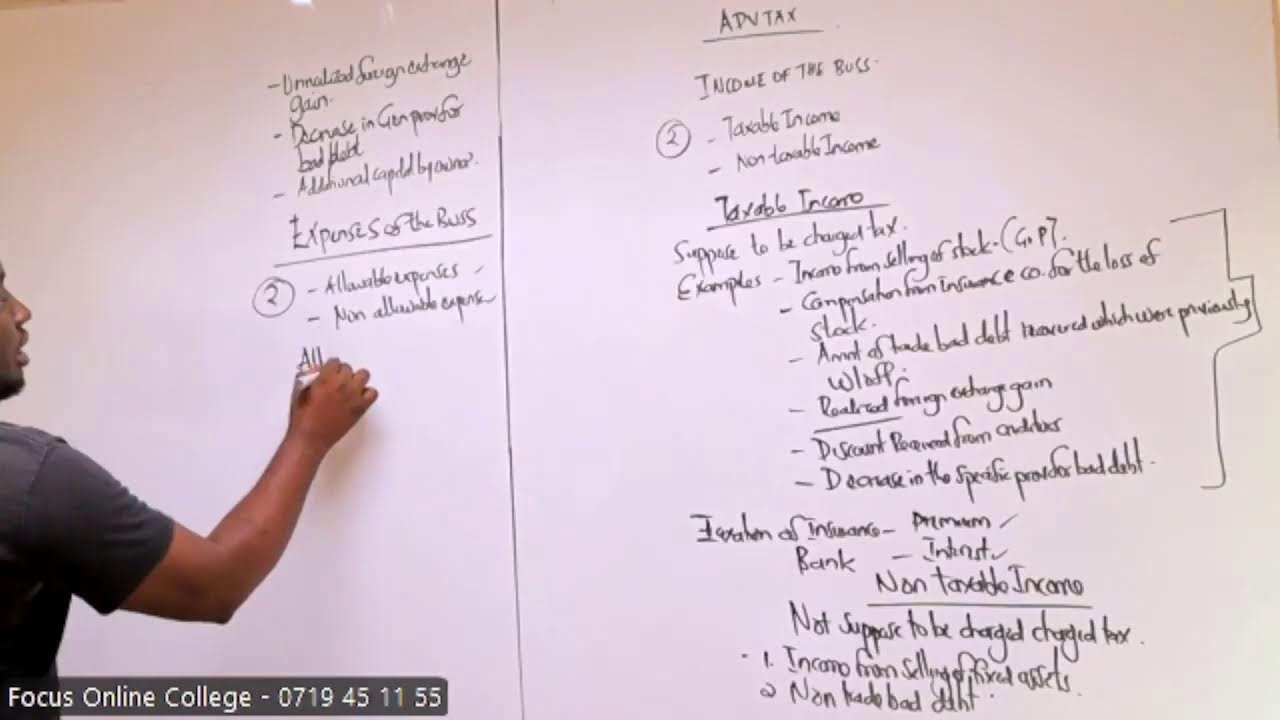 ADV TAX
INCOME OF THE BUSS.
2 - Taxable Income
- Non taxable Income
Taxable Income
Suppose to be charged tax.
Examples - Income from selling of stock. (G.P).
- Compensation from insurance co. for the loss of
stock.
- Amnt of trade bad debt recovered which were previously
w/off.
- Realized foreign exchange gain
- Discount Received from creditors
- Decrease in the specific prov for bad debt.
Taxation of Insurance - Premium ✓
Bank - Interest ✓
Non taxable Income
Not suppose to be charged charged tax.
1. Income from selling of fixed assets.
2 Non trade bad debt.
- Unrealized foreign exchange
gain.
- Decrease in Gen prov for
bad debt
- Additional capital by owner.
Expenses of the Buss
2 - Allowable expenses ✓
- Non allowable expense
All
Focus Online College - 0719 45 11 55